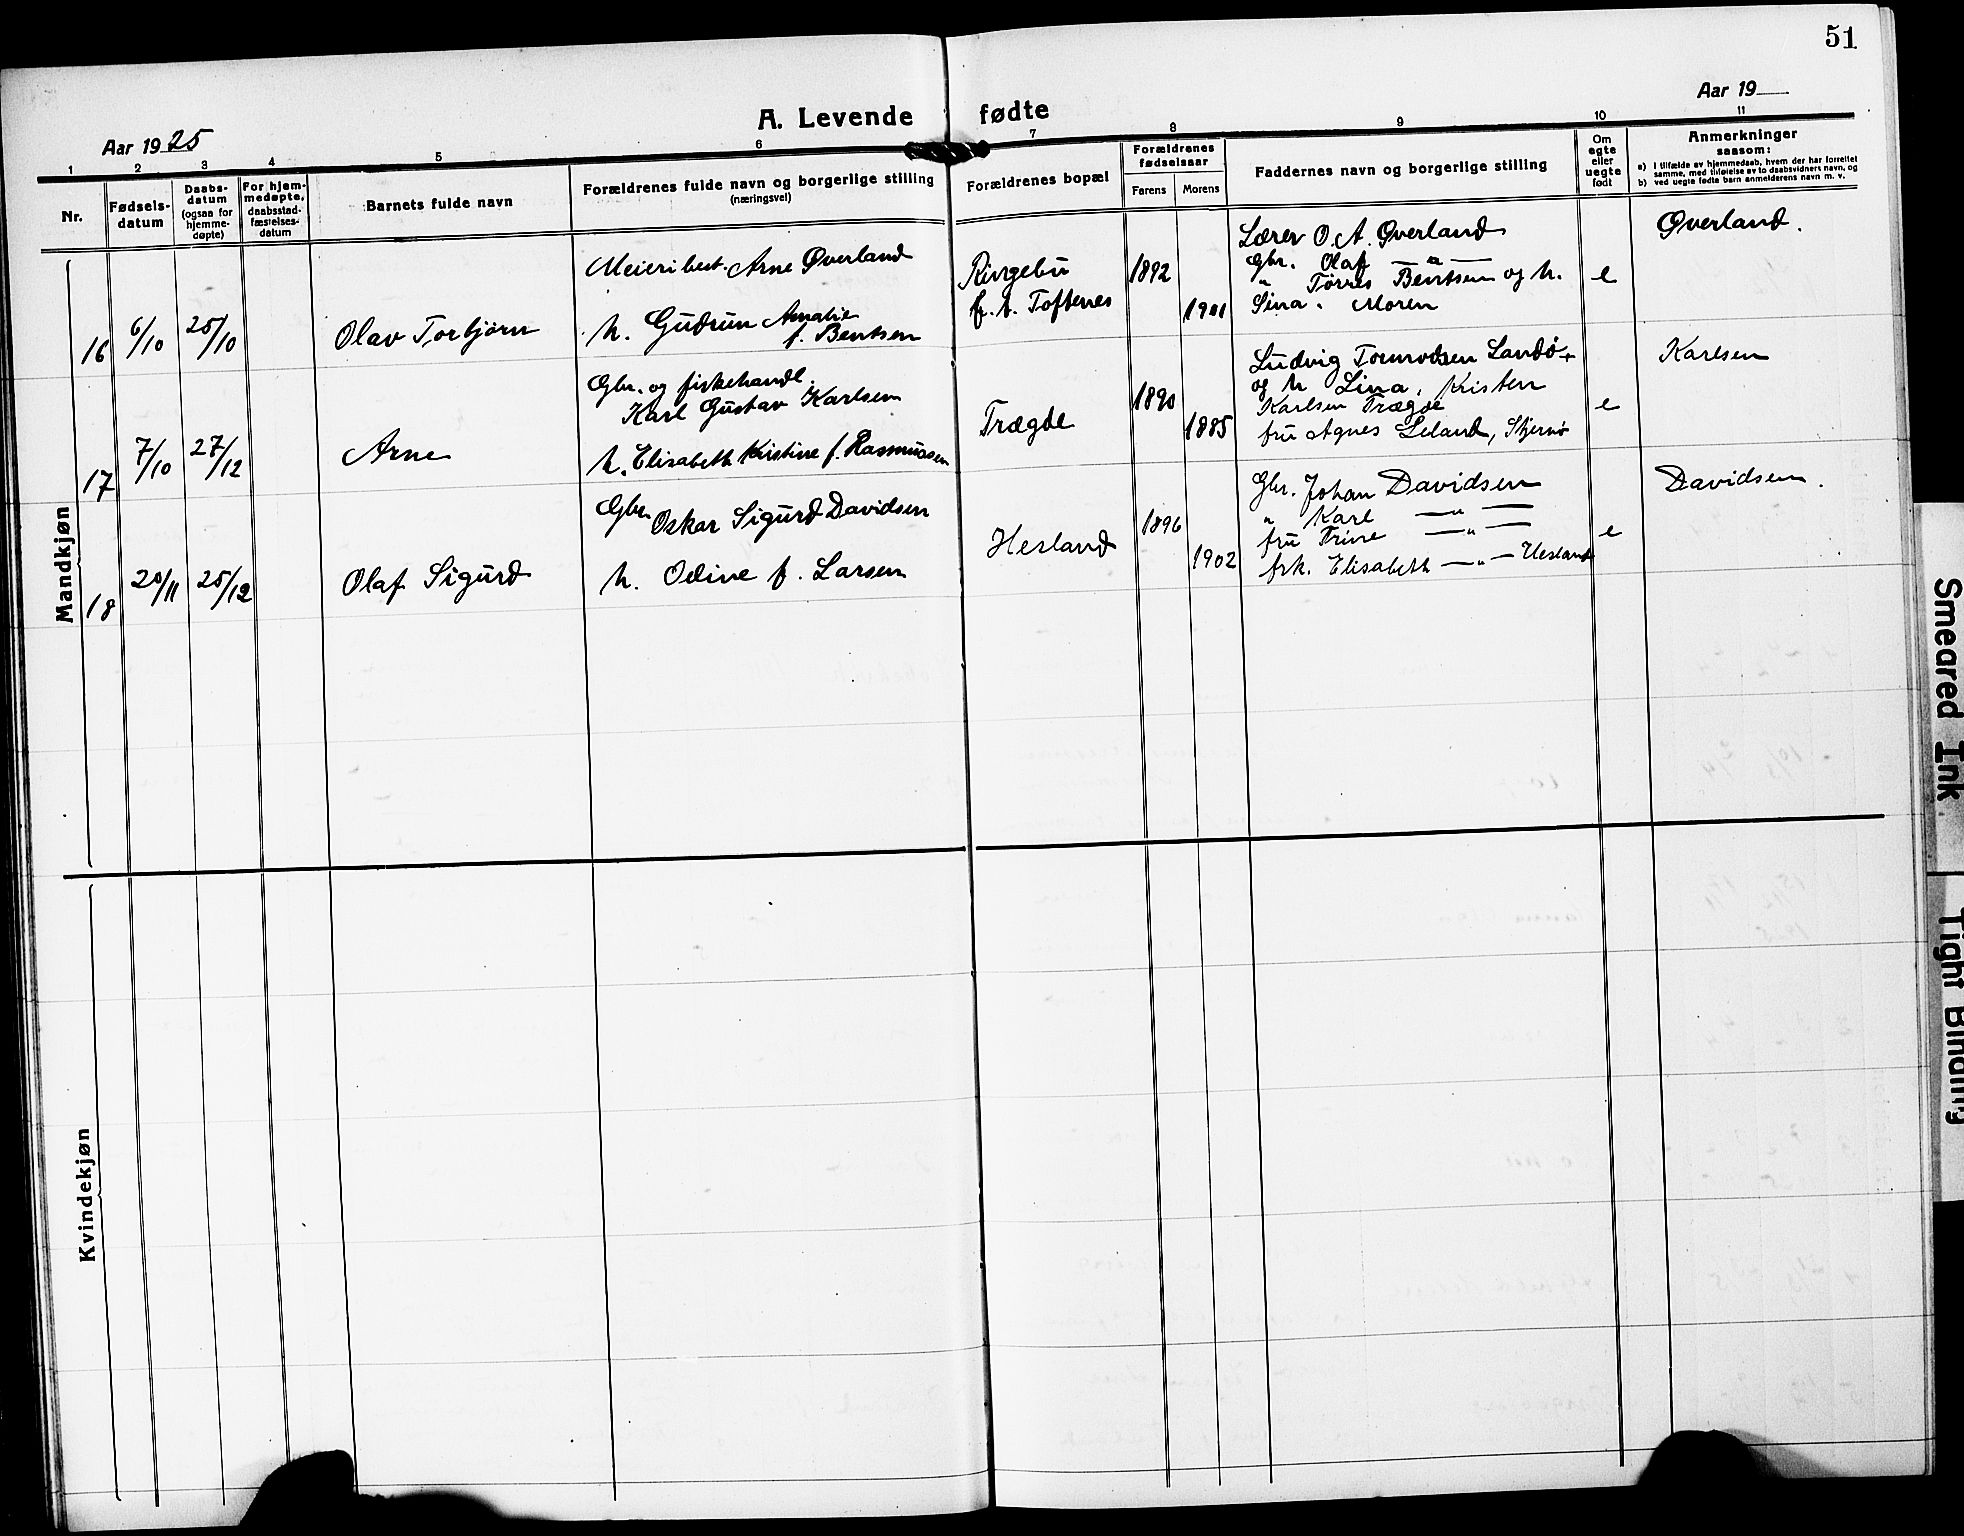 51
A. Levende fødte
Aar 1925
Aar 19
1 2 3 4 5 6 7 8 9 10 11
Nr.
Fødsels-
datum
Daabs-
datum
(ogsaa for
hjemme-
døpte)
For hjem-
medøpte,
daabsstad-
fæstelses-
datum
Barnets fulde navn
Forældrenes fulde navn og borgerlige stilling
(næringsvei)
Forældrenes bopæl
Forældrenes
fødselsaar
Farens Morens
Faddernes navn og borgerlige stilling
Om
egte
eller
uegte
født
Anmerkninger
saasom:
a) I tilfælde av hjemmedaab, hvem der har forrettet
samme, med tilføielse av to daabsvidners navn, og
b) ved uegte fødte barn anmelderens navn m. v.
Mandkjøn
16 6/10 25/10
Olav Torbjørn
Meieribest. Arne Øverland
h. Gudrun Amalie
f. Bentsen
Ringebu
f. t. Toftenes
1892
1901
Lærer O. A. Øverland
Gbr. Olaf — " —
" Tørres Bentsen og h.
Sina. Moren
e
Øverland.
17 7/10 27/12
Arne
Gbr. og fiskehandl.
Karl Gustav Karlsen
h. Elisabeth Kristine f. Rasmussen
Trægde
1890
1885
Ludvig Tormodsen Landø
og h Lina, Kristen
Karlsen Trægde
fru Agnes Leland, Skjernø
e
Karlsen
18 20/11 25/12
Olaf Sigurd
Gbr. Oskar Sigurd Davidsen
h. Odine f. Larsen
Hesland
1896
1902
Gbr. Johan Davidsen
" Karl — " —
fru Trine — " —
frk. Elisabeth — " — Hesland
e
Davidsen.
Kvindekjøn
Smeared Ink
Tight Binding